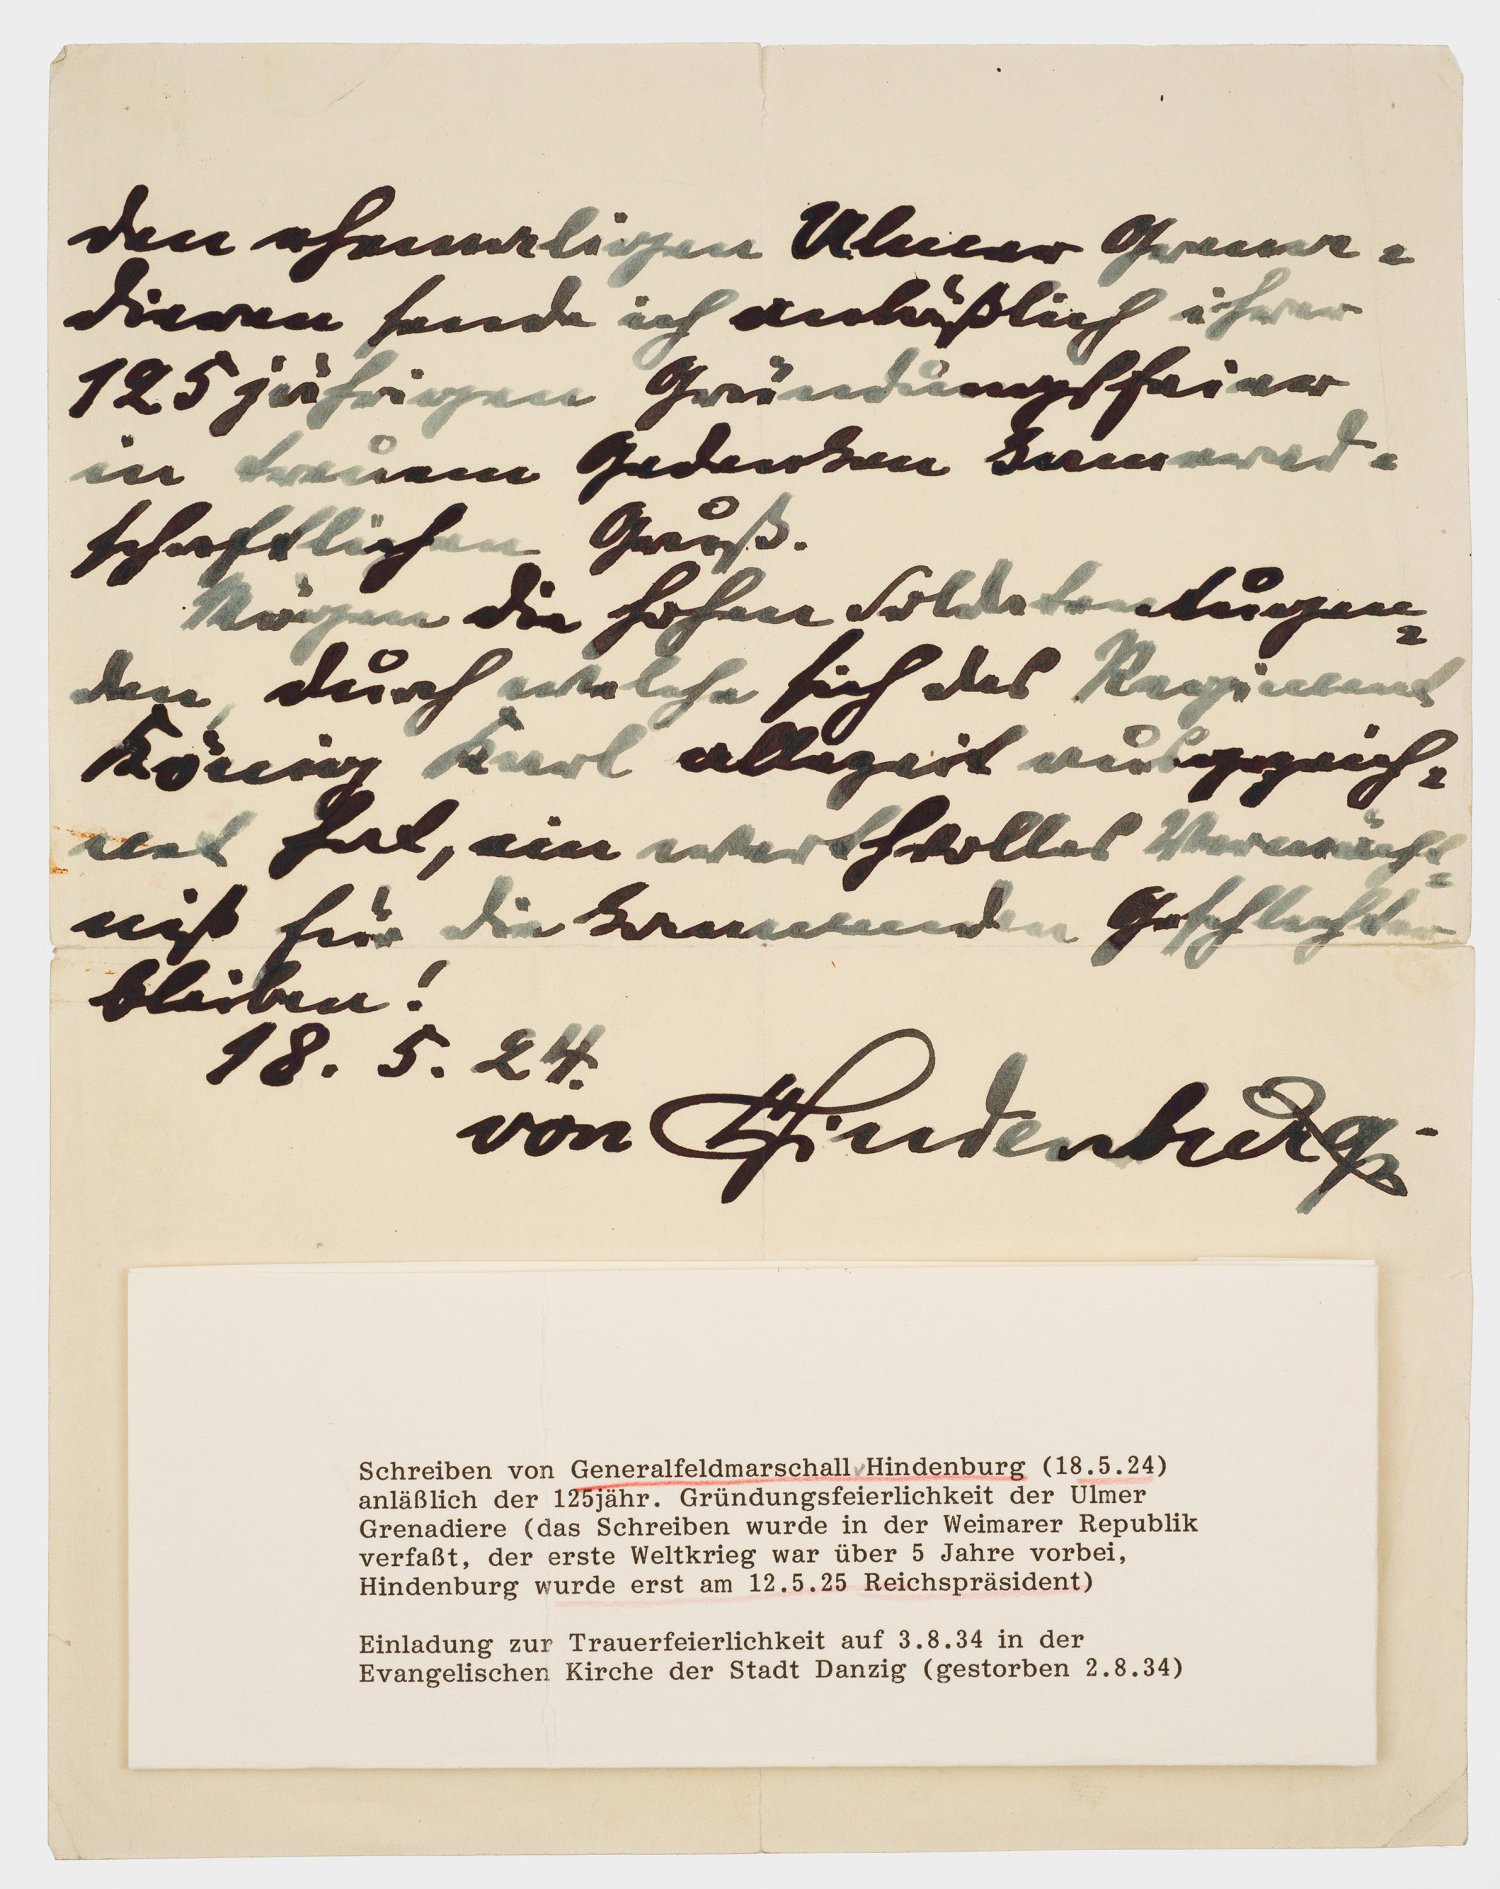 den ehemaligen Ulmer Grena=
dieren sende ich anläßlich ihrer
125 jährigen Gründungsfeier
in treuem Gedenken kamerad=
schaftlichen Gruß.
Mögen die hohen Soldatentugen=
den, durch welche sich das Regiment
König Karl allezeit ausgezeich=
net hat, ein werthvolles Vermächt=
niß für die kommenden Geschlechter
bleiben!
18. 5. 24.
von Hindenburg.
Schreiben von Generalfeldmarschall Hindenburg (18.5.24)
anläßlich der 125jähr. Gründungsfeierlichkeit der Ulmer
Grenadiere (das Schreiben wurde in der Weimarer Republik
verfaßt, der erste Weltkrieg war über 5 Jahre vorbei,
Hindenburg wurde erst am 12.5.25 Reichspräsident)
Einladung zur Trauerfeierlichkeit auf 3.8.34 in der
Evangelischen Kirche der Stadt Danzig (gestorben 2.8.34)